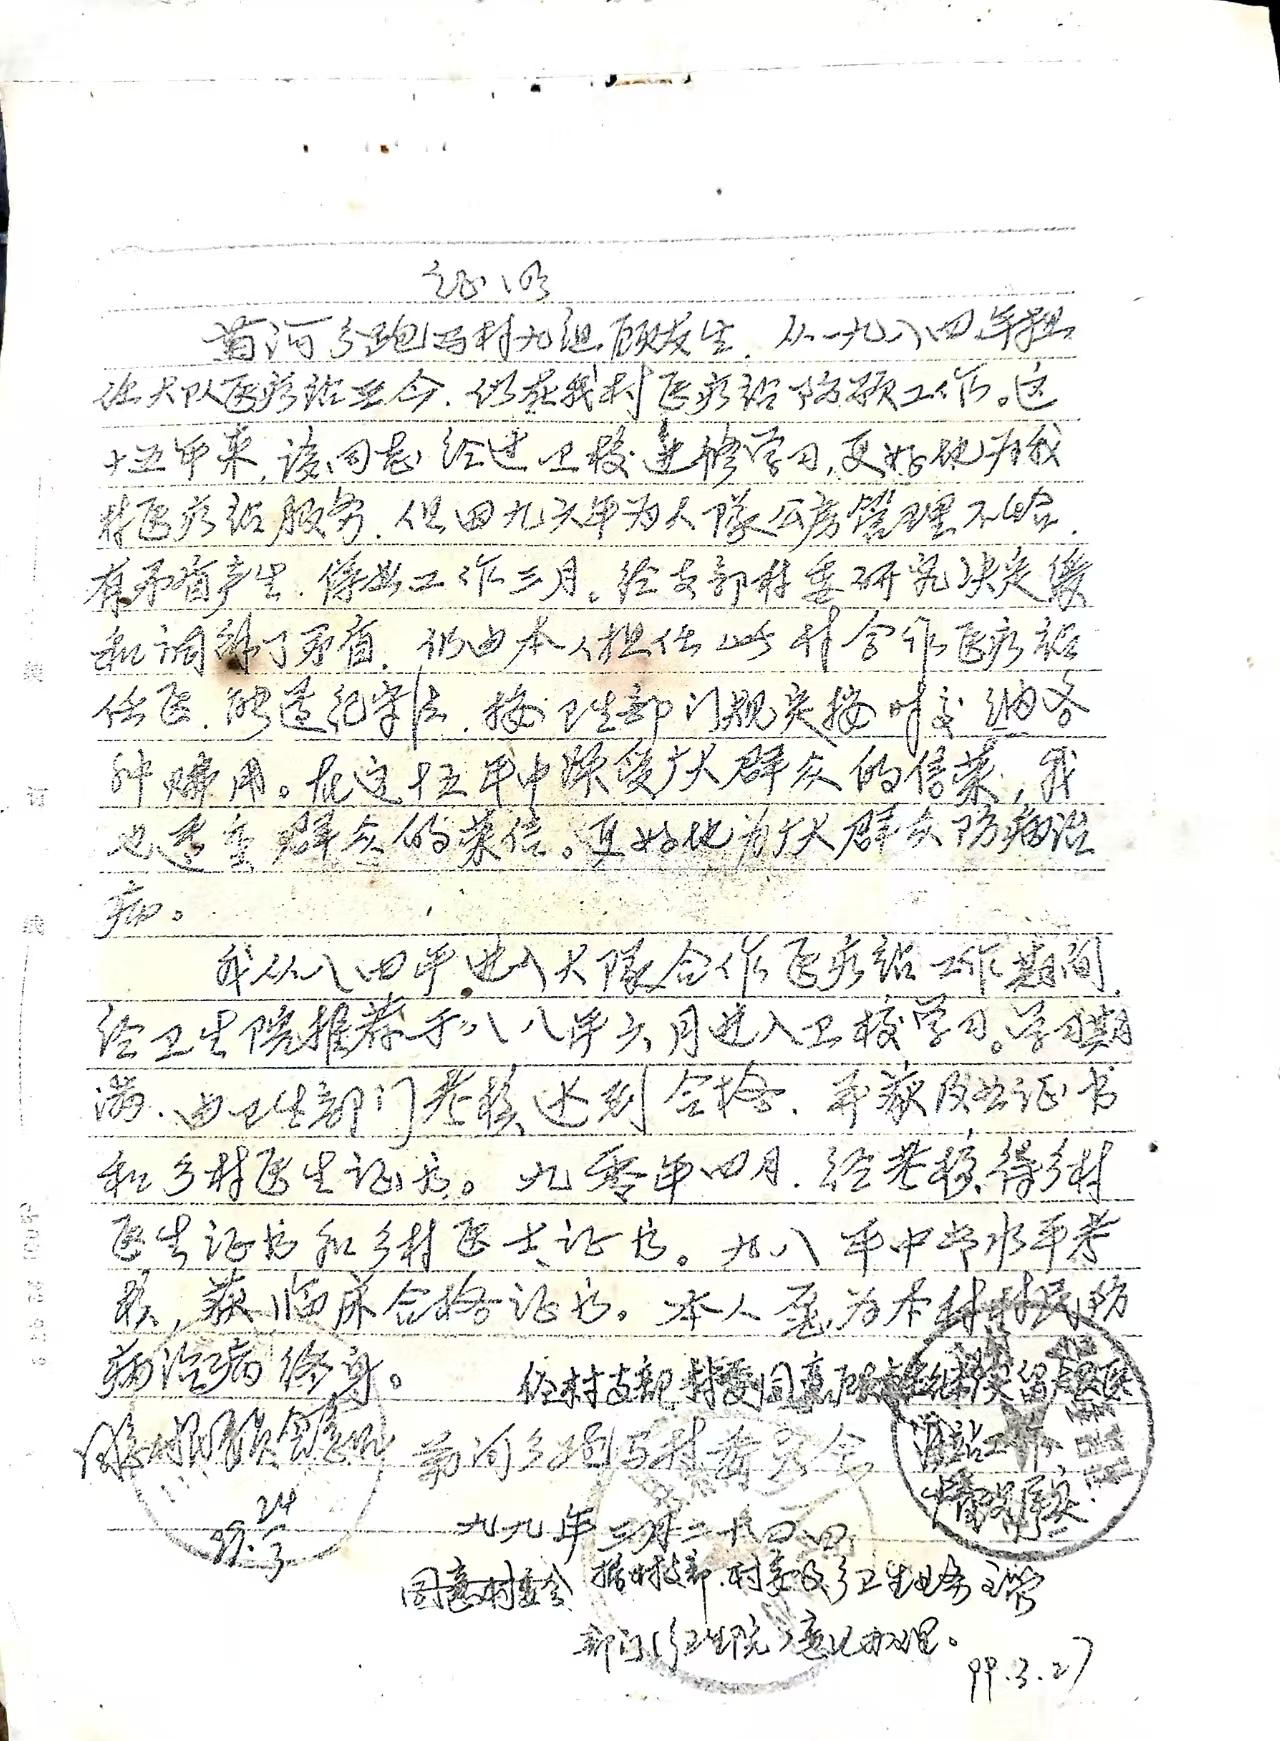 证明
黄河乡跑马村九组顾发生.从一九八四年担
任大队医疗站至今.仍在我村医疗站防预工作。这
十五年来,该同志经过卫校进修学习,更好地为我
村医疗站服务.但因九六年为大队公房管理不恰.
有矛盾产生.停业工作三月。经支部村委研究决定缓
和调解了矛盾.仍由本人担任此村合作医疗站
任医.能遵纪守法.按卫生部门规定按时交纳各
种费用。在这十五年中深受广大群众的信荣,我
也尊重群众的荣信。更好地为广大群众防病治
病。
我从八四年进入大队合作医疗站工作期间.
经卫生院推荐于八八年六月进入卫校学习。学习期
满.由卫生部门考核达到合格.并获毕业证书
和乡村医生证书。九零年四月.经考核得乡村
医生证书和乡村医士证书。九八年中专水平考
核,获临床合格证书。本人愿为本村村民防
病治病终身。
经村支部村委同意顾发生继续留居医
疗站工作.
情况属实.
黄河乡跑马村委员会
24
99.3
九九年三月二十四日
同意村委会
据村支部.村委及乡卫生业务主管
部门(乡卫生院)意见办理。
99.3.27